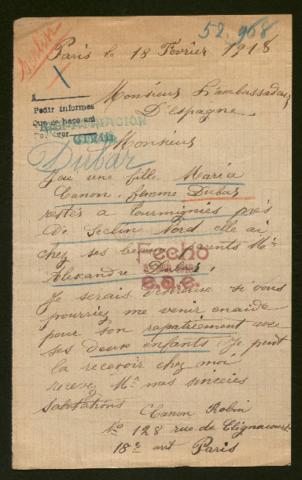 52.968
Paris le 18 Fevrier 1918
Monsieur L'ambassadeur
D'espagne
Pedir informes
Que se hace
Monsieur
Dubar
J'ai une fille Maria
Canon femme Dubar
restés a tourmignies près
De Seclin Nord elle ai
chez ses beaux parents Mr
Alexandre Dubar,
Fecho
e.a.e.
Je serais désireuse si vous
pourriez me venir en aide
pour son rapatriement avec
ses deux enfants Je peut
la recevoir chez moi
recevez Mr mes sincères
salutations
Canon Robin
No 128 rue de Clignacourt
18e art Paris